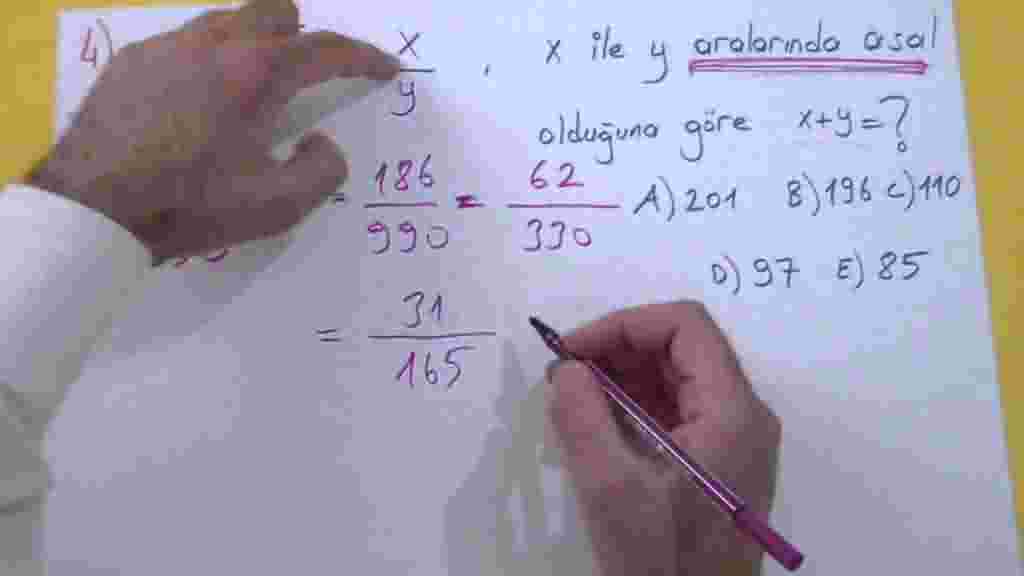 4) x/y , x ile y aralarında asal
olduğuna göre x+y=?
= 186/990 = 62/330 A) 201 B) 196 C) 110
D) 97 E) 85
= 31/165